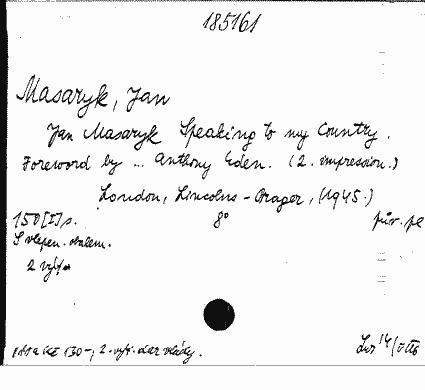 185161
Masaryk, Jan
Jan Masaryk Speaking to my Country.
Foreword by ... Anthony Eden. (2. impression.)
London, Lincolns-Prager, (1945.)
150[I] s. 8° pův. pl
S vlepen. obalem.
2 výt.
Kč 130-; 2. výt. dar vlády.